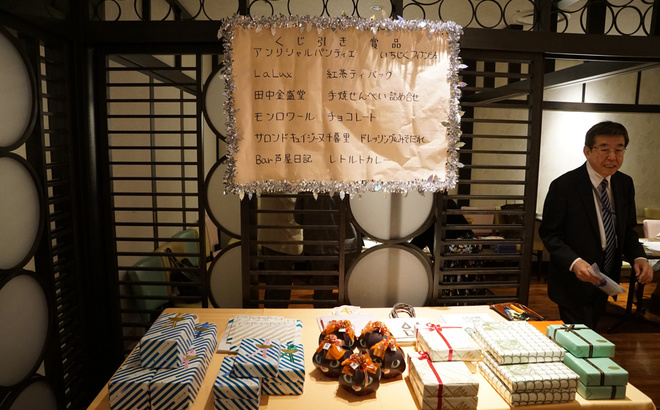 くじ引き 賞品
アンリシャルパンティエ いちじくフィナンシェ
LaLux 紅茶ティバッグ
田中金盛堂 手焼せんべい詰め合せ
モンロワール チョコレート
サロンドキュイジーヌ千暮里 ドレッシング&みそだれ
Bar芦屋日記 レトルトカレー